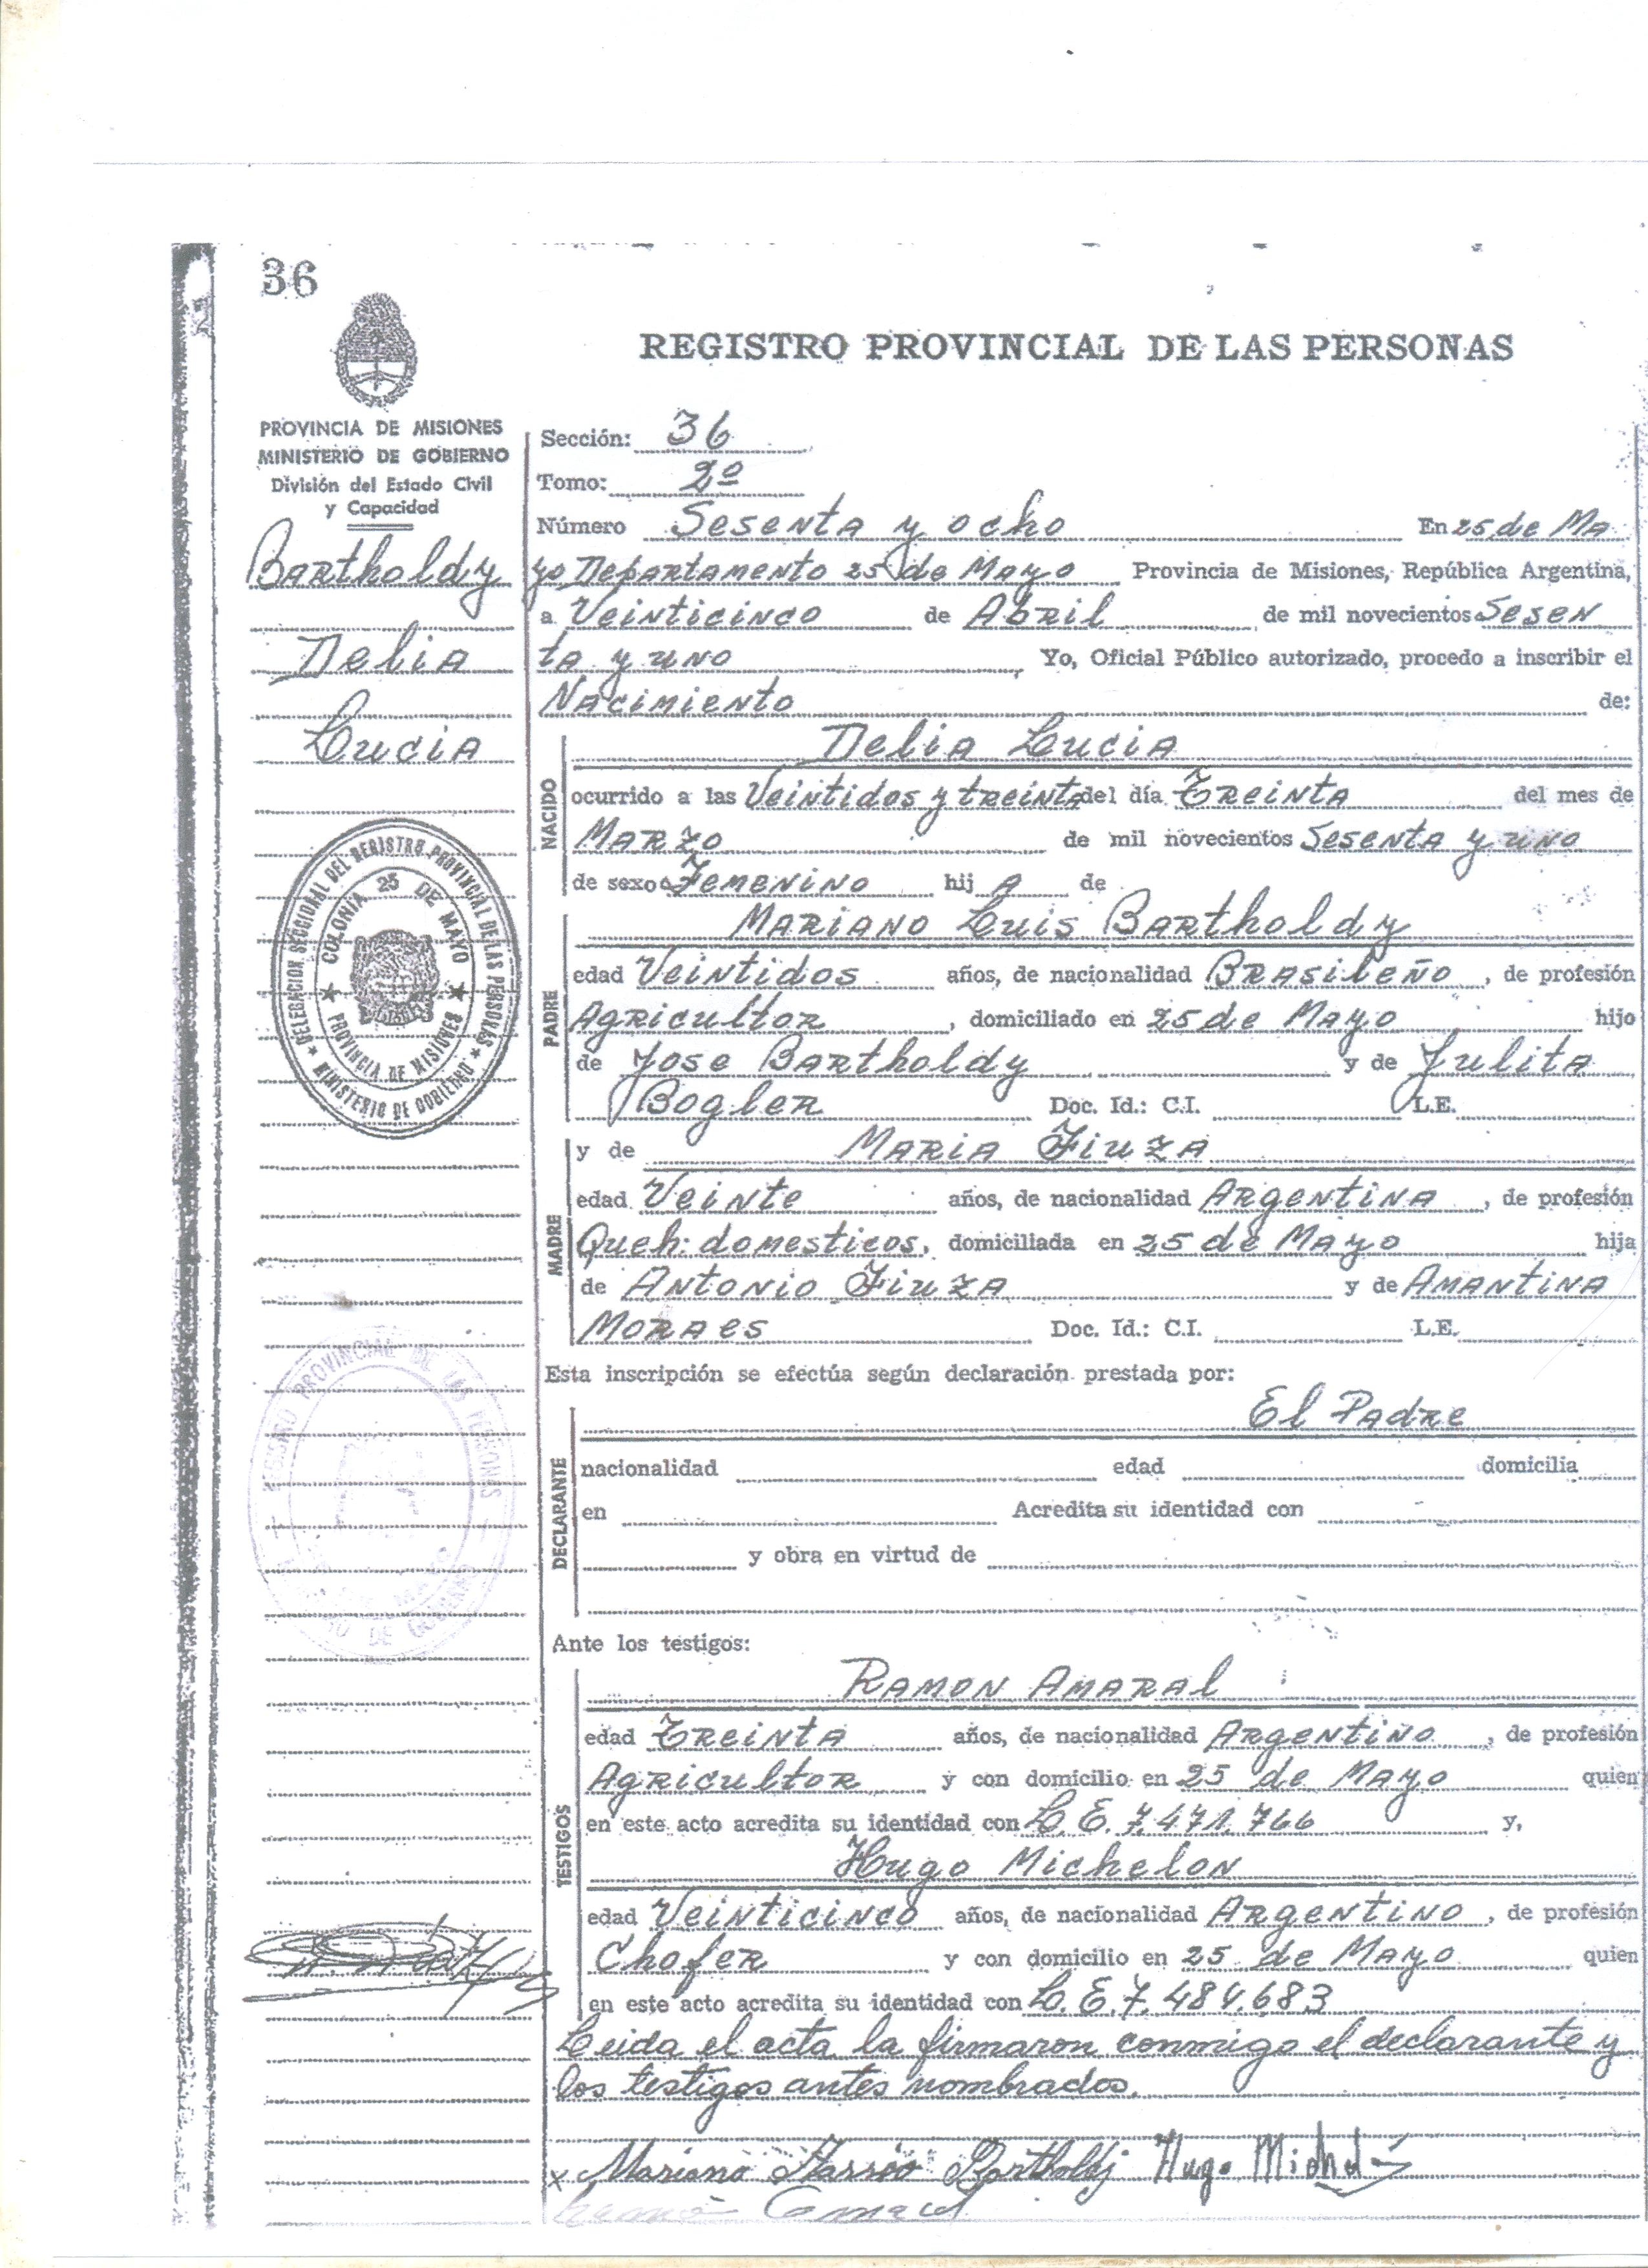 36
REGISTRO PROVINCIAL DE LAS PERSONAS
PROVINCIA DE MISIONES
MINISTERIO DE GOBIERNO
División del Estado Civil
y Capacidad
Bartholdy
Delia
Lucia
DELEGACION SECCIONAL DEL REGISTRO PROVINCIAL DE LAS PERSONAS
MINISTERIO DE GOBIERNO
COLONIA 25 DE MAYO
PROVINCIA DE MISIONES
Sección: 36
Tomo: 2º
Número Sesenta y ocho En 25 de Ma
yo Departamento 25 de Mayo Provincia de Misiones, República Argentina,
a Veinticinco de Abril de mil novecientos Sesen
ta y uno Yo, Oficial Público autorizado, procedo a inscribir el
Nacimiento de:
NACIDO
Delia Lucia
ocurrido a las Veintidos y treinta del día Treinta del mes de
Marzo de mil novecientos Sesenta y uno
de sexo Femenino hij a de
PADRE
Mariano Luis Bartholdy
edad Veintidos años, de nacionalidad Brasileño, de profesión
Agricultor, domiciliado en 25 de Mayo hijo
de Jose Bartholdy y de Julita
Bogler Doc. Id.: C.I. L.E.
MADRE
y de Maria Fiuza
edad Veinte años, de nacionalidad Argentina, de profesión
Queh. domesticos, domiciliada en 25 de Mayo hija
de Antonio Fiuza y de Amantina
Moraes Doc. Id.: C.I. L.E.
Esta inscripción se efectúa según declaración prestada por:
DECLARANTE
El Padre
nacionalidad edad domicilia
en Acredita su identidad con
y obra en virtud de
REGISTRO PROVINCIAL DE LAS PERSONAS
DE GOBIERNO
Ante los testigos:
TESTIGOS
Ramon Amaral
edad Treinta años, de nacionalidad Argentino, de profesión
Agricultor y con domicilio en 25 de Mayo quien
en este acto acredita su identidad con L.E. 7.471.766 y,
Hugo Michelon
edad Veinticinco años, de nacionalidad Argentino, de profesión
Chofer y con domicilio en 25 de Mayo quien
en este acto acredita su identidad con L.E. 7.484.683
Leida el acta la firmaron conmigo el declarante y
los testigos antes nombrados.
x Mariano Bartholdy Hugo